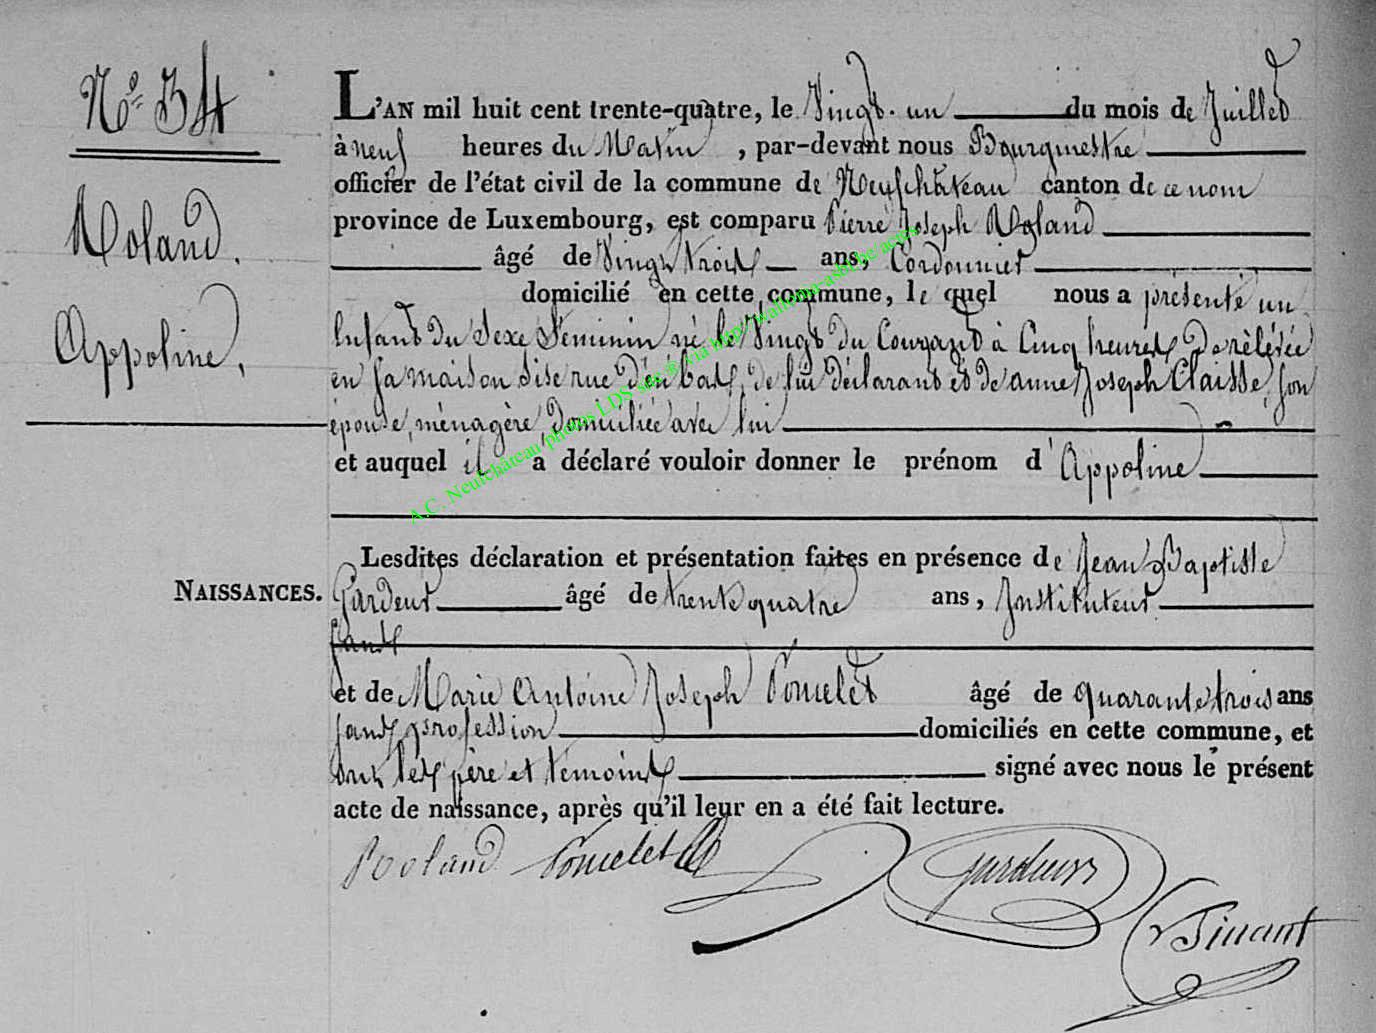 N° 34
Roland.
Appoline,
NAISSANCES.
L'AN mil huit cent trente-quatre, le Vingt-un du mois de Juillet
à neuf heures du Matin, par-devant nous Bourgmestre
officier de l'état civil de la commune de Neufchâteau canton de ce nom
province de Luxembourg, est comparu Pierre Joseph Roland
âgé de Vingt trois ans, Cordonnier
domicilié en cette commune, le quel nous a présenté un
Enfant du Sexe Féminin né le Vingt du Courant à Cinq heures de relévée
en sa maison sise rue d'en bas, de lui déclarant et de anne Joseph Claisse, son
épouse, ménagère, domiciliée avec lui
et auquel il a déclaré vouloir donner le prénom d'Appoline
Lesdites déclaration et présentation faites en présence de Jean Baptiste
Gardeur âgé de trente quatre ans, Instituteur
sans
et de Marie Antoine Joseph Poncelet âgé de quarante trois ans
sans profession domiciliés en cette commune, et
ont les père et témoins signé avec nous le présent
acte de naissance, après qu'il leur en a été fait lecture.
Roland Poncelet gardeur
Tinant
A.C. Neufchâteau photos LDS